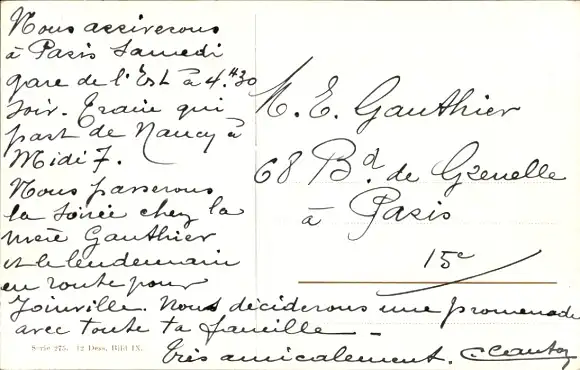 Nous arriverons
à Paris Samedi
gare de l'Est à 4.H30
soir. Train qui
part de Nancy à
Midi 7.
Nous passerons
la soirée chez la
mère Gauthier
et le lendemain
en route pour
Joinville. Nous déciderons une promenade
avec toute ta famille -
Très amicalement.
M. E. Gauthier
68 Bd. de Grenelle
à Paris
15e
Serie 275. 12 Dess, Bild IX.